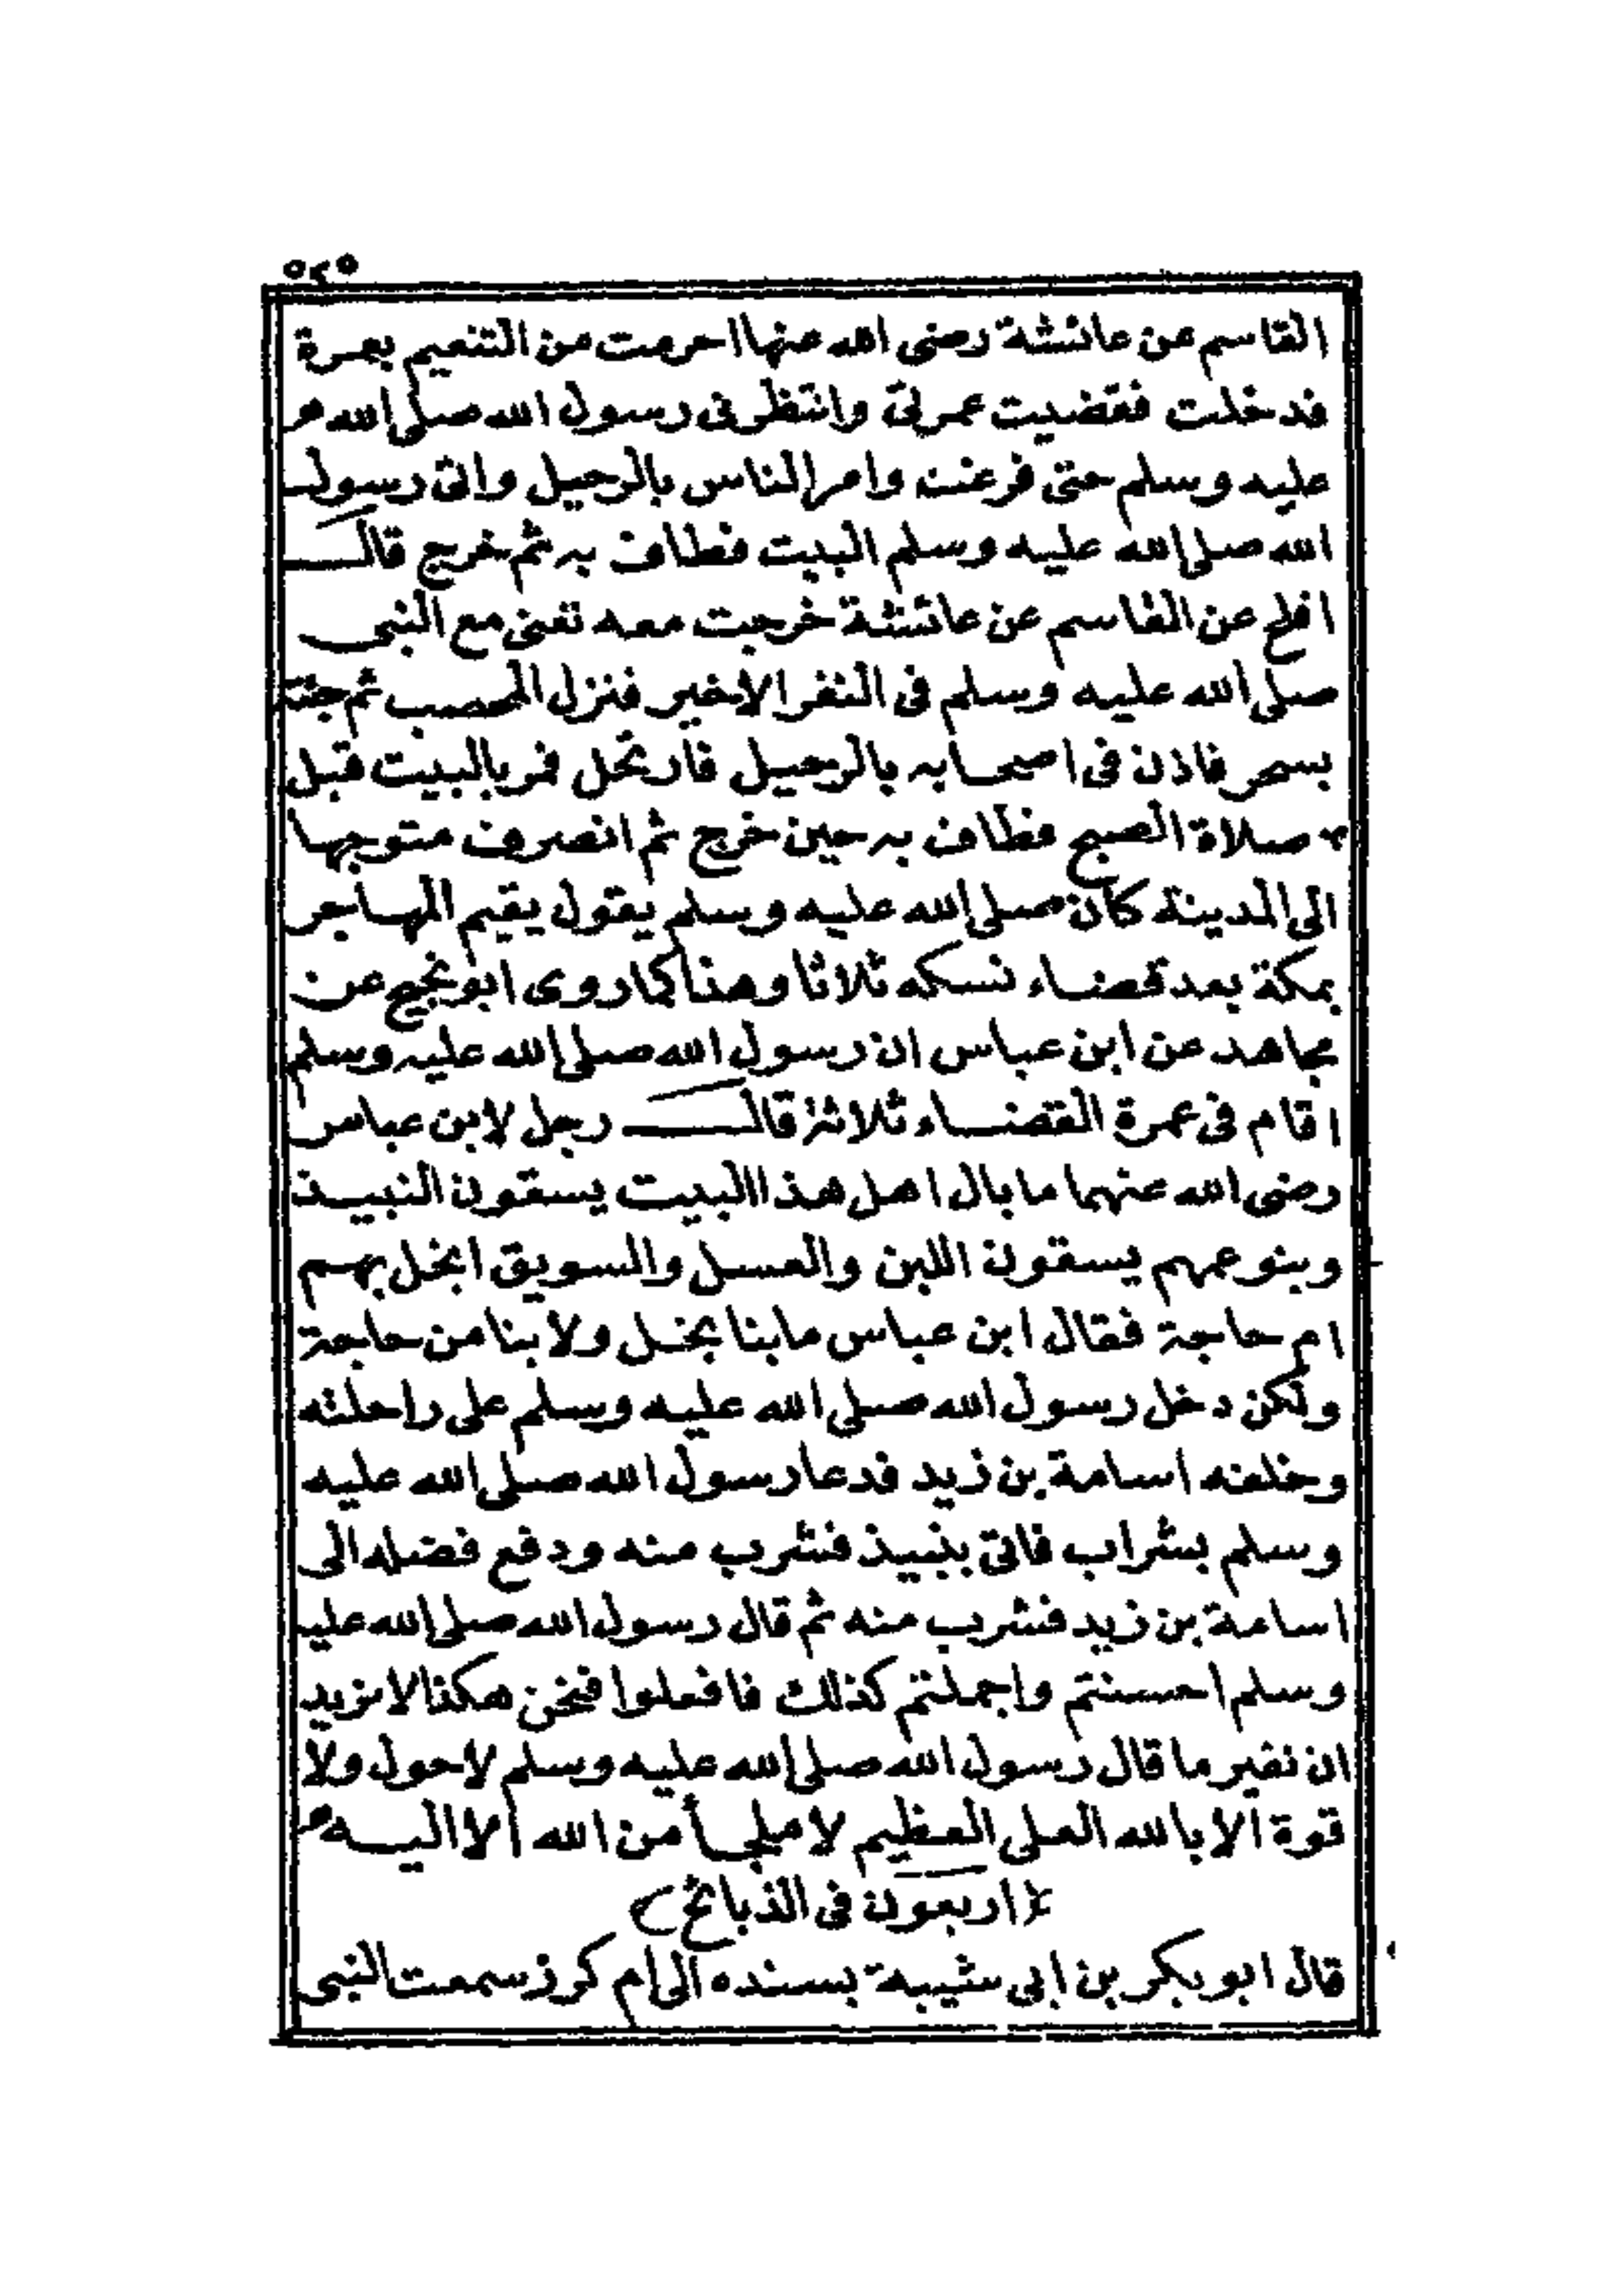 ٥٢٥
القاسم عن عائشة رضى الله عنها احرمت من التنعيم بعمرة
فدخلت فقضيت عمرتى وانتظرنى رسول الله صلى الله
عليه وسلم حتى فرغت وامر الناس بالرحيل واتى رسول
الله صلى الله عليه وسلم البيت فطاف به ثم خرج قال
افلح عن القاسم عن عائشة خرجت معه تعنى مع النبى
صلى الله عليه وسلم فى النفر الاخير فنزل المحصب ثم جئته
بسحر فاذن فى اصحابه بالرحيل فارتحل فمر بالبيت قبل
صلاة الصبح فطاف به حين خرج ثم انصرف متوجها
الى المدينة كان صلى الله عليه وسلم يقول يقيم المهاجر
بمكة بعد قضاء نسكه ثلاثا وهذا كما روى ابو نجيح عن
مجاهد عن ابن عباس ان رسول الله صلى الله عليه وسلم
اقام فى عمرة القضاء ثلاثا قال رجل لابن عباس
رضى الله عنهما ما بال اهل هذا البيت يسقون النبيذ
وبنو عمهم يسقون اللبن والعسل والسويق ابخل بهم
ام حاجة فقال ابن عباس ما بنا بخل ولا بنا من حاجة
ولكن دخل رسول الله صلى الله عليه وسلم على راحلته
وخلفه اسامة بن زيد فدعا رسول الله صلى الله عليه
وسلم بشراب فاتى بنبيذ فشرب منه ودفع فضله الى
اسامة بن زيد فشرب منه ثم قال رسول الله صلى الله عليه
وسلم احسنتم واجملتم كذلك فافعلوا فنحن هكذا لا نريد
ان نغير ما قال رسول الله صلى الله عليه وسلم لا حول ولا
قوة الا بالله العلى العظيم لا ملجأ من الله الا اليه
اربعون فى الذبائح
قال ابو بكر بن ابى شيبة بسنده الى ام كرز سمعت النبى